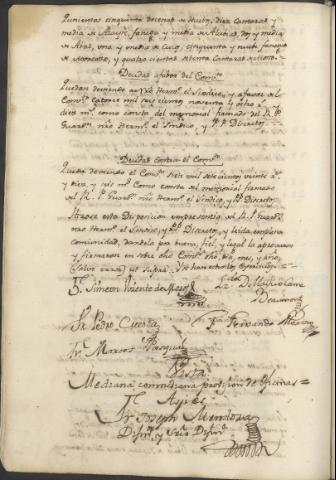 Quinientas cinquenta docenas de Huebos, diez Cantaras y
media de Azeyte, fanega y media de Alubias, dos y media
de Abas, una y media de
de y quatro cientas ochenta Cantaras de vino.
Deudas afabor del Conv.to
Quedan deviendo a Nro Herm.o el Sindico, y afavor del
Conv.to Catorce mil seis cientos noventa y ocho r.s
diez m.s como consta del memorial firmado del R. P.
Guard.n nro Herm.o el Sindico, y P.P. Discretos.
Deudas contra el Conv.to
Queda deviendo el Conv.to siete mil seiscientos veinte r.s
y diez, y seis m.s Como consta del memorial firmado
del R. P. Guard.n nro Herm.o el Sindico, y P.P. Discretos
Hizose esta Disposicion en presencia del R. P. Guard.n
nro Herm.o el Sindico, y P.P. Discretos, y leida en plena
comunidad, dandola por buena, fiel, y legal la aprovaron
y firmaron en dho Conv.to dho dia, mes, y año,
ut supra.
Fr. Simeon Vicente de
Fr. Pedro Cuesta
Fr. Fernando
Fr. Marcos Pasqual
Vista
Mediana, con mediana provision de oficinas
Ayres
Fr. Joseph Mendoza
Difin.or y Secr.o Difin.or